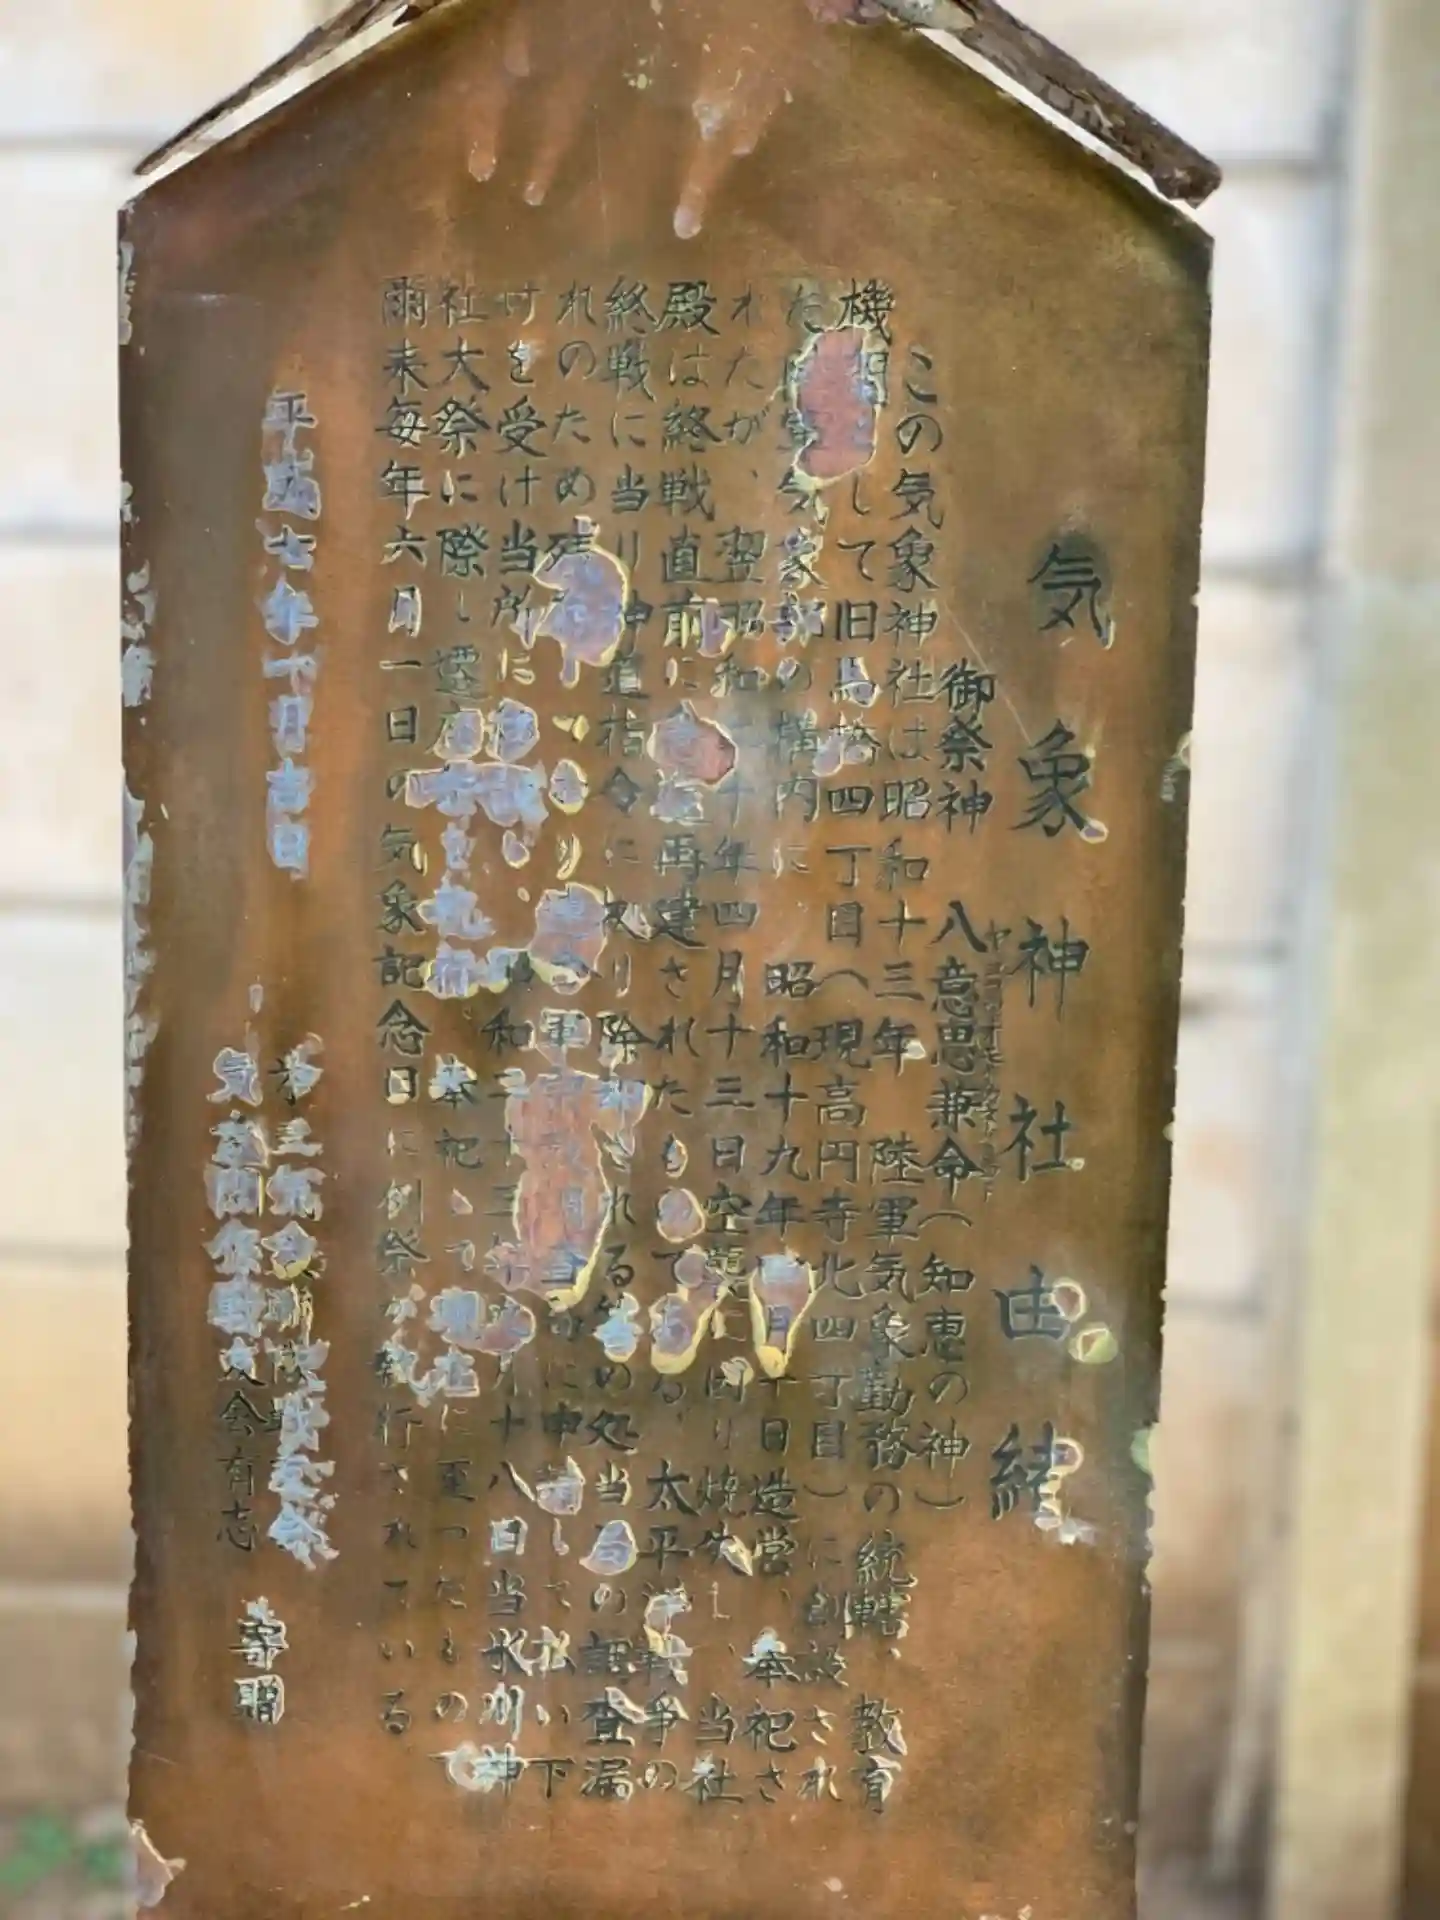 気象神社由緒
御祭神 八意思兼命（知恵の神）
この気象神社は昭和十三年 陸軍気象勤務の統轄、教育
機関として旧馬橋四丁目（現高円寺北四丁目）に創設され
た陸軍気象部の構内に 昭和十九年 月十日造営、奉祀さ
れたが、翌昭和二十年四月十三日空襲に因り焼失し、当社
殿は終戦直前に 再建されたものである。太平洋戦争の
終戦に当り神道指令に り除却される筈の処当局の調査漏
れのため残 軍 に申請して払い下
げを受け当所に 昭和二十三年 月十八日当氷川神
社大祭に際し遷座 奉祀して現在に至ったもので
爾来毎年六月一日の気象記念日に例祭が執行されている
平成七年 月吉日
第三気象聯隊戦友会
気象関係戦友会有志 寄贈